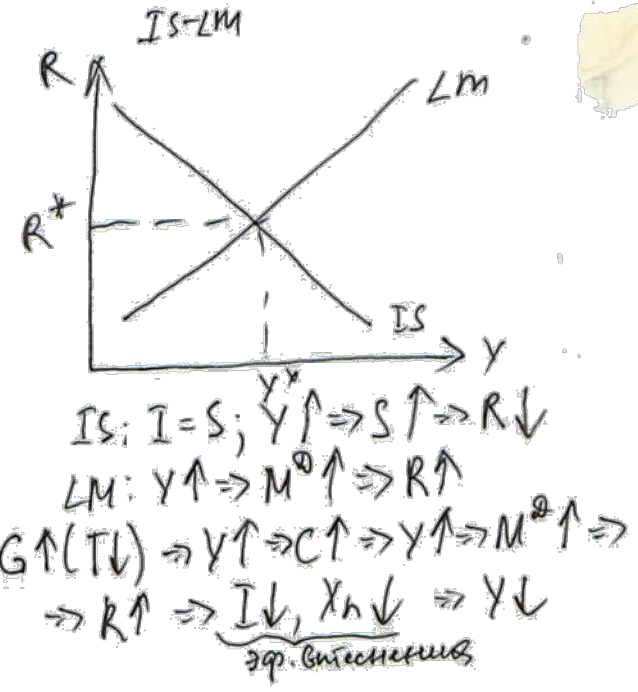 IS-LM
R
LM
R*
IS
Y
Y*
IS: I=S; Y↑⇒S↑⇒R↓
LM: Y↑⇒M^D↑⇒R↑
G↑(T↓)⇒Y↑⇒C↑⇒Y↑⇒M^D↑⇒
⇒R↑⇒I↓, Xn↓⇒Y↓
эф. вытеснения